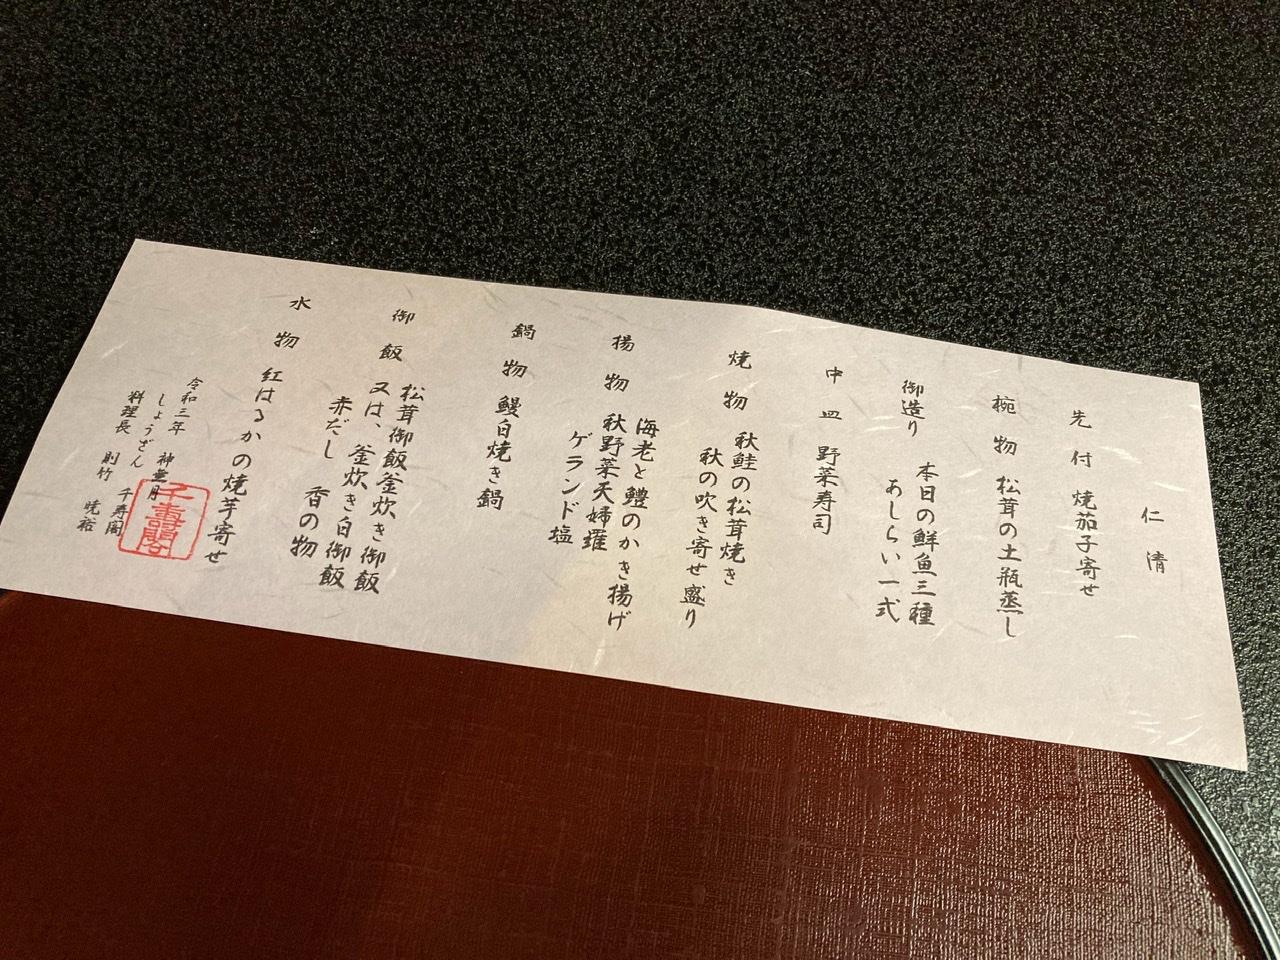 仁清
先付 焼茄子寄せ
椀物 松茸の土瓶蒸し
御造り 本日の鮮魚三種
あしらい一式
中皿 野菜寿司
焼物 秋鮭の松茸焼き
秋の吹き寄せ盛り
揚物 海老と鱧のかき揚げ
秋野菜天婦羅
ゲランド塩
鍋物 鰻白焼き鍋
御飯 松茸御飯釜炊き御飯
又は、釜炊き白御飯
赤だし 香の物
水物 紅はるかの焼芋寄せ
令和三年 神無月
しょうざん 千寿閣
料理長 則竹 暁裕
千壽閣